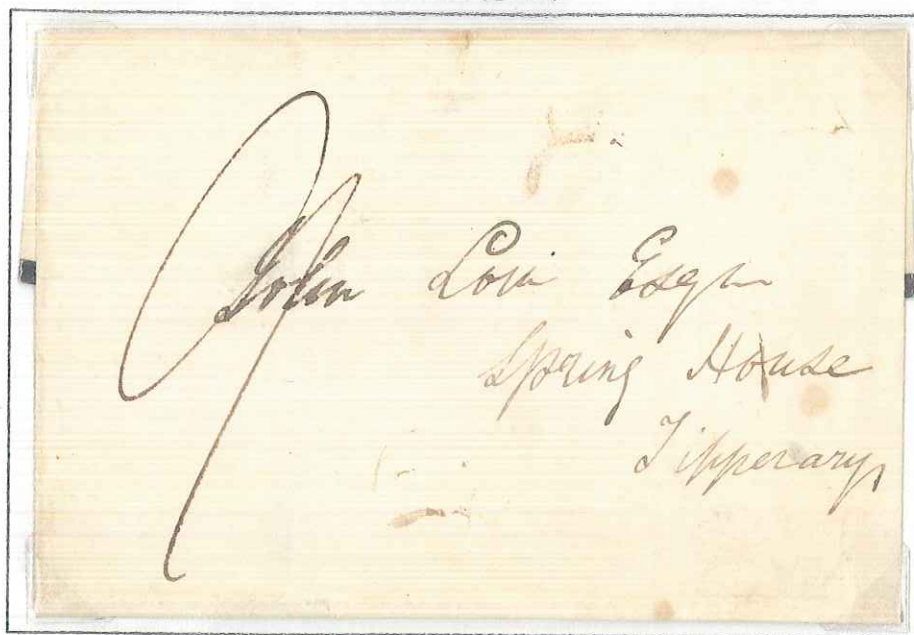 9
John Low Esqr
Spring House
Tipperary